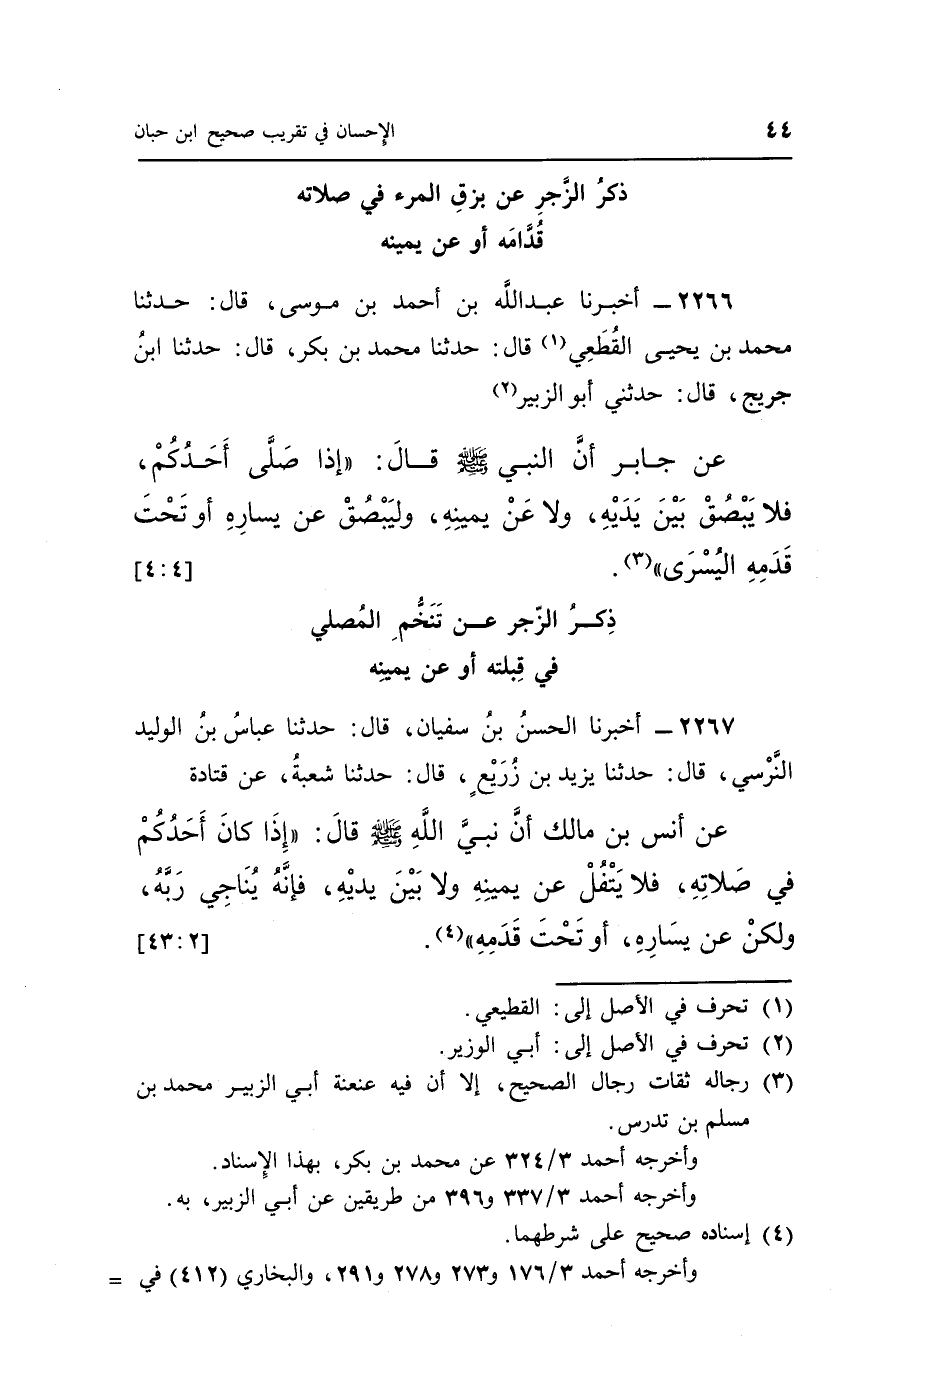 ٤٤ الإحسان في تقريب صحيح ابن حبان
ذكرُ الزَّجرِ عن بزقِ المرء في صلاته
قُدَّامَه أو عن يمينه
٢٢٦٦ ـ أخبرنا عبدالله بن أحمد بن موسى، قال: حدثنا
محمد بن يحيى القُطَعِي(١) قال: حدثنا محمد بن بكر، قال: حدثنا ابنُ
جريج، قال: حدثني أبو الزبير(٢)
عن جابر أنَّ النبي ﷺ قالَ: «إذا صَلَّى أَحَدُكُمْ،
فلا يَبْصُقْ بَيْنَ يَدَيْهِ، ولا عَنْ يمينِهِ، وليَبْصُقْ عن يسارِهِ أو تَحْتَ
قَدَمِهِ اليُسْرَى»(٣). [٤:٤]
ذِكرُ الزّجر عن تَنَخُّمِ المُصلي
في قِبلته أو عن يمينِه
٢٢٦٧ ـ أخبرنا الحسنُ بنُ سفيان، قال: حدثنا عباسُ بنُ الوليد
النَّرْسي، قال: حدثنا يزيد بن زُرَيْعٍ، قال: حدثنا شعبةُ، عن قتادة
عن أنس بن مالك أنَّ نبيَّ اللَّهِ ﷺ قالَ: «إِذَا كانَ أَحَدُكُمْ
في صَلاتِهِ، فلا يَتْفُلْ عن يمينِهِ ولا بَيْنَ يديْهِ، فإنَّهُ يُنَاجِي رَبَّهُ،
ولكنْ عن يسَارِهِ، أو تَحْتَ قَدَمِهِ»(٤). [٤٣:٢]
(١) تحرف في الأصل إلى: القطيعي.
(٢) تحرف في الأصل إلى: أبي الوزير.
(٣) رجاله ثقات رجال الصحيح، إلا أن فيه عنعنة أبي الزبير محمد بن
مسلم بن تدرس.
وأخرجه أحمد ٣٢٤/٣ عن محمد بن بكر، بهذا الإِسناد.
وأخرجه أحمد ٣٣٧/٣ و٣٩٦ من طريقين عن أبي الزبير، به.
(٤) إسناده صحيح على شرطهما.
وأخرجه أحمد ١٧٦/٣ و٢٧٣ و٢٧٨ و٢٩١، والبخاري (٤١٢) في =